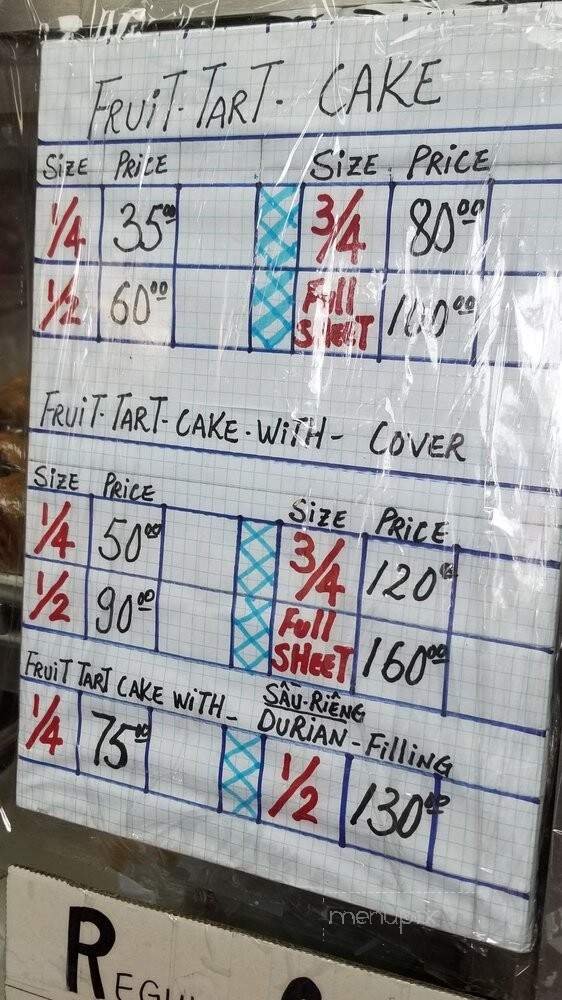 FRUIT-TART- CAKE
SIZE PRICE SIZE PRICE
1/4 35.00 3/4 80.00
1/2 60.00 Full SHEET 100.00
FRUIT-TART-CAKE-WITH- COVER
SIZE PRICE SIZE PRICE
1/4 50.00 3/4 120.00
1/2 90.00 Full SHEET 160.00
FRUIT TART CAKE WITH- SẦU-RIÊNG
DURIAN-Filling
1/4 75.00 1/2 130.00
menupix